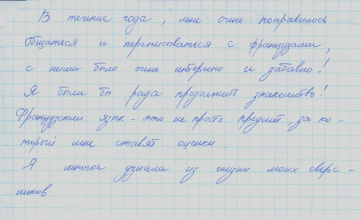 В течение года, мне очень понравилось
общаться и переписываться с французами,
с ними было очень интересно и забавно!
Я была бы рада продолжить знакомство!
Французский язык - это не просто предмет, за ко-
торый мне ставят оценки.
Я многое узнала из жизни моих сверс-
ников